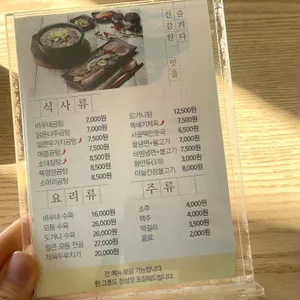 즐기다
건강한 맛을
식사류
바우네곰탕 7,000원
맑은나주곰탕 7,500원
얼큰우거지곰탕 7,500원
매콤곰탕 8,500원
소내장탕 8,500원
특별양곰탕 8,500원
소머리곰탕 8,500원
도가니탕 12,500원
통새기찌개 7,500원
사골떡만둣국 6,500원
물냉면+불고기 7,500원
비빔냉면+불고기 7,500원
왕만두(3개) 3,000원
마늘간장불고기 8,000원
요리류
바우네 수육 16,000원
모둠 수육 26,000원
도가니 수육 26,000원
얼큰 모듬 전골 27,000원
제육두루치기 20,000원
주류
소주 4,000원
맥주 4,000원
막걸리 3,500원
음료 2,000원
전 메뉴 포장 가능합니다
한 그릇도 정성껏 포장해드립니다.